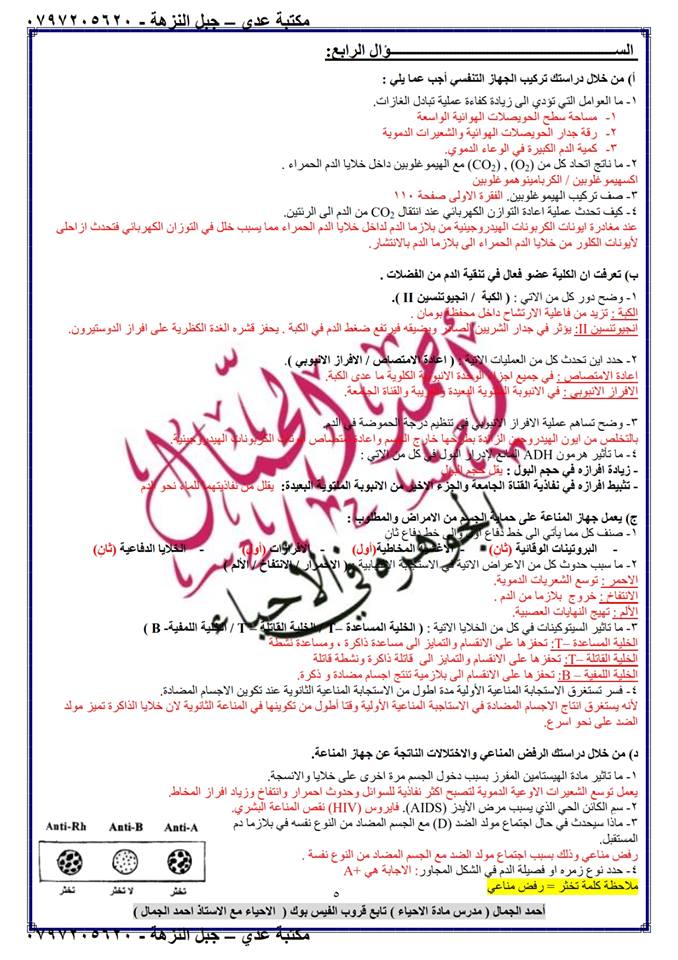 مكتبة عدي – جبل النزهة - ٠٧٩٧٢٠٥٦٢٠
الســـــــؤال الرابع:
أ) من خلال دراستك تركيب الجهاز التنفسي أجب عما يلي :
١- ما العوامل التي تؤدي الى زيادة كفاءة عملية تبادل الغازات.
١- مساحة سطح الحويصلات الهوائية الواسعة
٢- رقة جدار الحويصلات الهوائية والشعيرات الدموية
٣- كمية الدم الكبيرة في الوعاء الدموي.
٢- ما ناتج اتحاد كل من (O2) , (CO2) مع الهيموغلوبين داخل خلايا الدم الحمراء .
اكسهيموغلوبين / الكربامينوهموغلوبين
٣- صف تركيب الهيموغلوبين. الفقرة الاولى صفحة ١١٠
٤- كيف تحدث عملية اعادة التوازن الكهربائي عند انتقال CO2 من الدم الى الرئتين.
عند مغادرة ايونات الكربونات الهيدروجينية من بلازما الدم لداخل خلايا الدم الحمراء مما يسبب خلل في التوزان الكهربائي فتحدث ازاحلى
لأيونات الكلور من خلايا الدم الحمراء الى بلازما الدم بالانتشار.
ب) تعرفت ان الكلية عضو فعال في تنقية الدم من الفضلات .
١- وضح دور كل من الاتي : ( الكبة / انجيوتنسين II ).
الكبة : تزيد من فاعلية الارتشاح داخل محفظة بومان .
انجيوتنسين II: يؤثر في جدار الشريين الصادر ويضيقه فيرتفع ضغط الدم في الكبة . يحفز قشره الغدة الكظرية على افراز الدوستيرون.
٢- حدد اين تحدث كل من العمليات الاتية : ( اعادة الامتصاص / الافراز الانبوبي ).
اعادة الامتصاص : في جميع اجزاء الوحدة الانبوبية الكلوية ما عدى الكبة.
الافراز الانبوبي : في الانبوبة الملتوية البعيدة والقريبة والقناة الجامعة.
٣- وضح تساهم عملية الافراز الانبوبي في تنظيم درجة الحموضة في الدم
بالتخلص من ايون الهيدروجين الزائدة بطرحها خارج الجسم واعادة امتصاص ايونات الكربونات الهيدروجينية.
٤- ما تأثير هرمون ADH المانع لإدرار البول في كل من الاتي :
- زيادة افرازه في حجم البول : يقل حجم البول
- تثبيط افرازه في نفاذية القناة الجامعة والجزء الاخير من الانبوبة الملتوية البعيدة: يقلل من نفاذيتهما للماء نحو الدم
ج) يعمل جهاز المناعة على حماية الجسم من الامراض والمطلوب :
١- صنف كل مما يأتي الى خط دفاع اول والى خط دفاع ثان
- البروتينات الوقائية (ثان) - الأغشية المخاطية(اول) - الافرازات (أول) - الخلايا الدفاعية (ثان)
٢- ما سبب حدوث كل من الاعراض الاتية في الاستجابة الالتهابية : ( الاحمرار / الانتفاخ / الألم )
الاحمر : توسع الشعريات الدموية.
الانتفاخ : خروج بلازما من الدم .
الألم : تهيج النهايات العصبية.
٣- ما تاثير السيتوكينات في كل من الخلايا الاتية : ( الخلية المساعدة –T / الخلية القاتلة –T / الخلية اللمفية- B )
الخلية المساعدة –T: تحفزها على الانقسام والتمايز الى مساعدة ذاكرة ، ومساعدة نشطة
الخلية القاتلة –T: تحفزها على الانقسام والتمايز الى قاتلة ذاكرة ونشطة قاتلة
الخلية اللمفية – B: تحفزها على الانقسام الى بلازمية تنتج اجسام مضادة و ذكرة.
٤- فسر تستغرق الاستجابة المناعية الأولية مدة اطول من الاستجابة المناعية الثانوية عند تكوين الاجسام المضادة.
لأنه يستغرق انتاج الاجسام المضادة في الاستاجبة المناعية الأولية وقتا أطول من تكوينها في المناعة الثانوية لان خلايا الذاكرة تميز مولد
الضد على نحو اسرع.
د) من خلال دراستك الرفض المناعي والاختلالات الناتجة عن جهاز المناعة.
١- ما تاثير مادة الهيستامين المفرز بسبب دخول الجسم مرة اخرى على خلايا والانسجة.
يعمل توسع الشعيرات الاوعية الدموية لتصبح اكثر نفاذية للسوائل وحدوث احمرار وانتفاخ وزياد افراز المخاط.
٢- سم الكائن الحي الذي يسبب مرض الأيدز (AIDS). فايروس (HIV) نقص المناعة البشري.
٣- ماذا سيحدث في حال اجتماع مولد الضد (D) مع الجسم المضاد من النوع نفسه في بلازما دم
المستقبل.
رفض مناعي وذلك بسبب اجتماع مولد الضد مع الجسم المضاد من النوع نفسة .
٤- حدد نوع زمره او فصيلة الدم في الشكل المجاور: الاجابة هي +A
ملاحظة كلمة تخثر = رفض مناعي
Anti-Rh Anti-B Anti-A
تخثر لا تخثر تخثر
٥
أحمد الجمال ( مدرس مادة الاحياء ) تابع قروب الفيس بوك ( الاحياء مع الاستاذ احمد الجمال )
مكتبة عدي – جبل النزهة - ٠٧٩٧٢٠٥٦٢٠